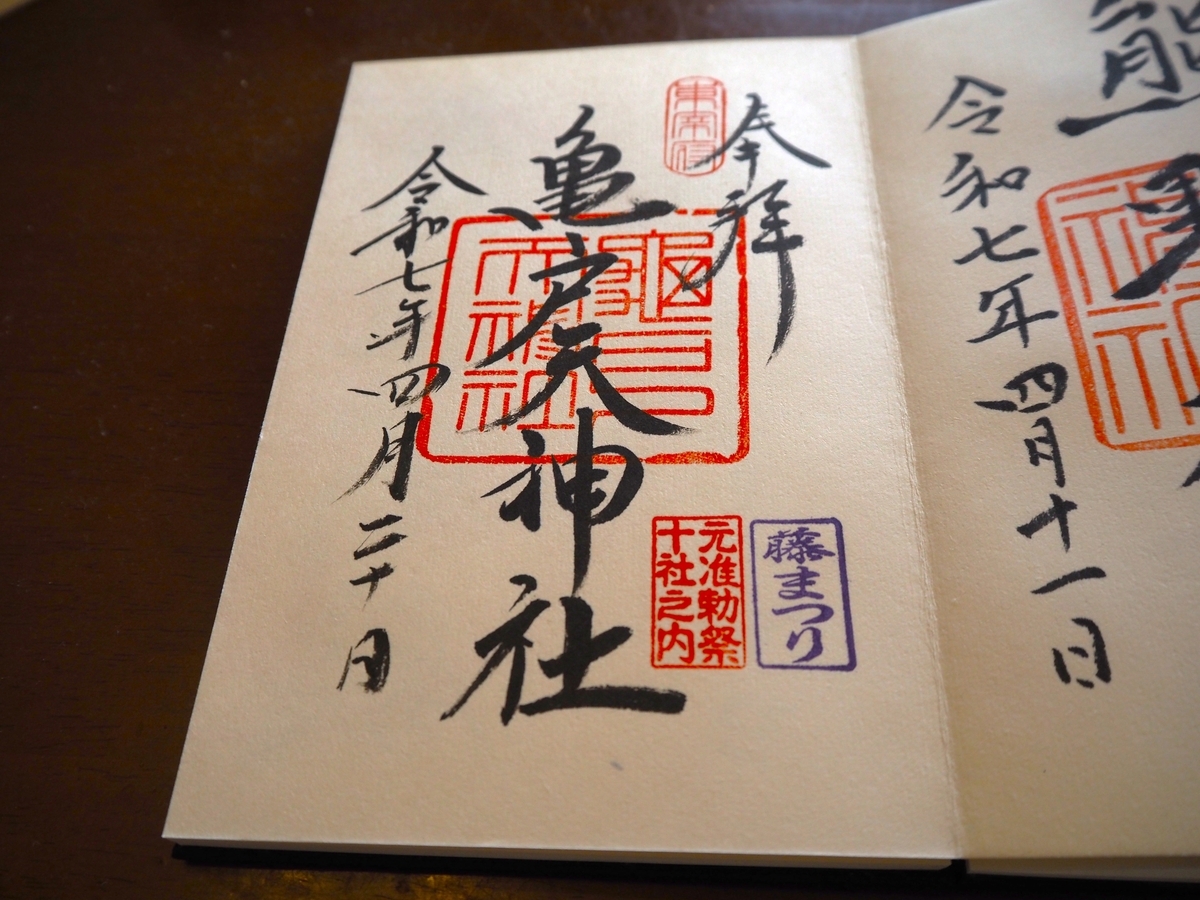 令和七年四月十一日
奉拝
亀戸天神社
令和七年四月二十日
藤まつり
元准勅祭
十社之内